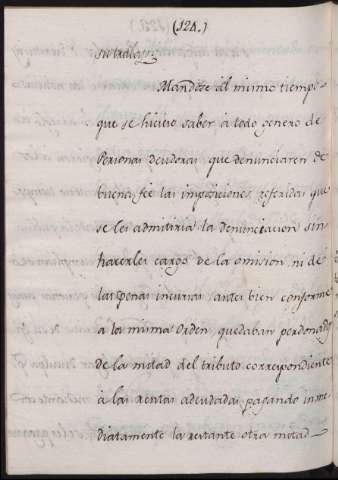 (124.)
Mandose al mismo tiempo
que se hiciese saber à todo genero de
Personas deudoras que denunciaren de
buena fee las imposiciones referidas que
se les admitiria la denunciacion sin
hacerles cargo de la omision ni de
las penas incursas antes bien conforme
a la misma orden quedaban perdonados
de la mitad del tributo correspondiente
à las rentas adeudadas pagando inme
diatamente la restante otra mitad